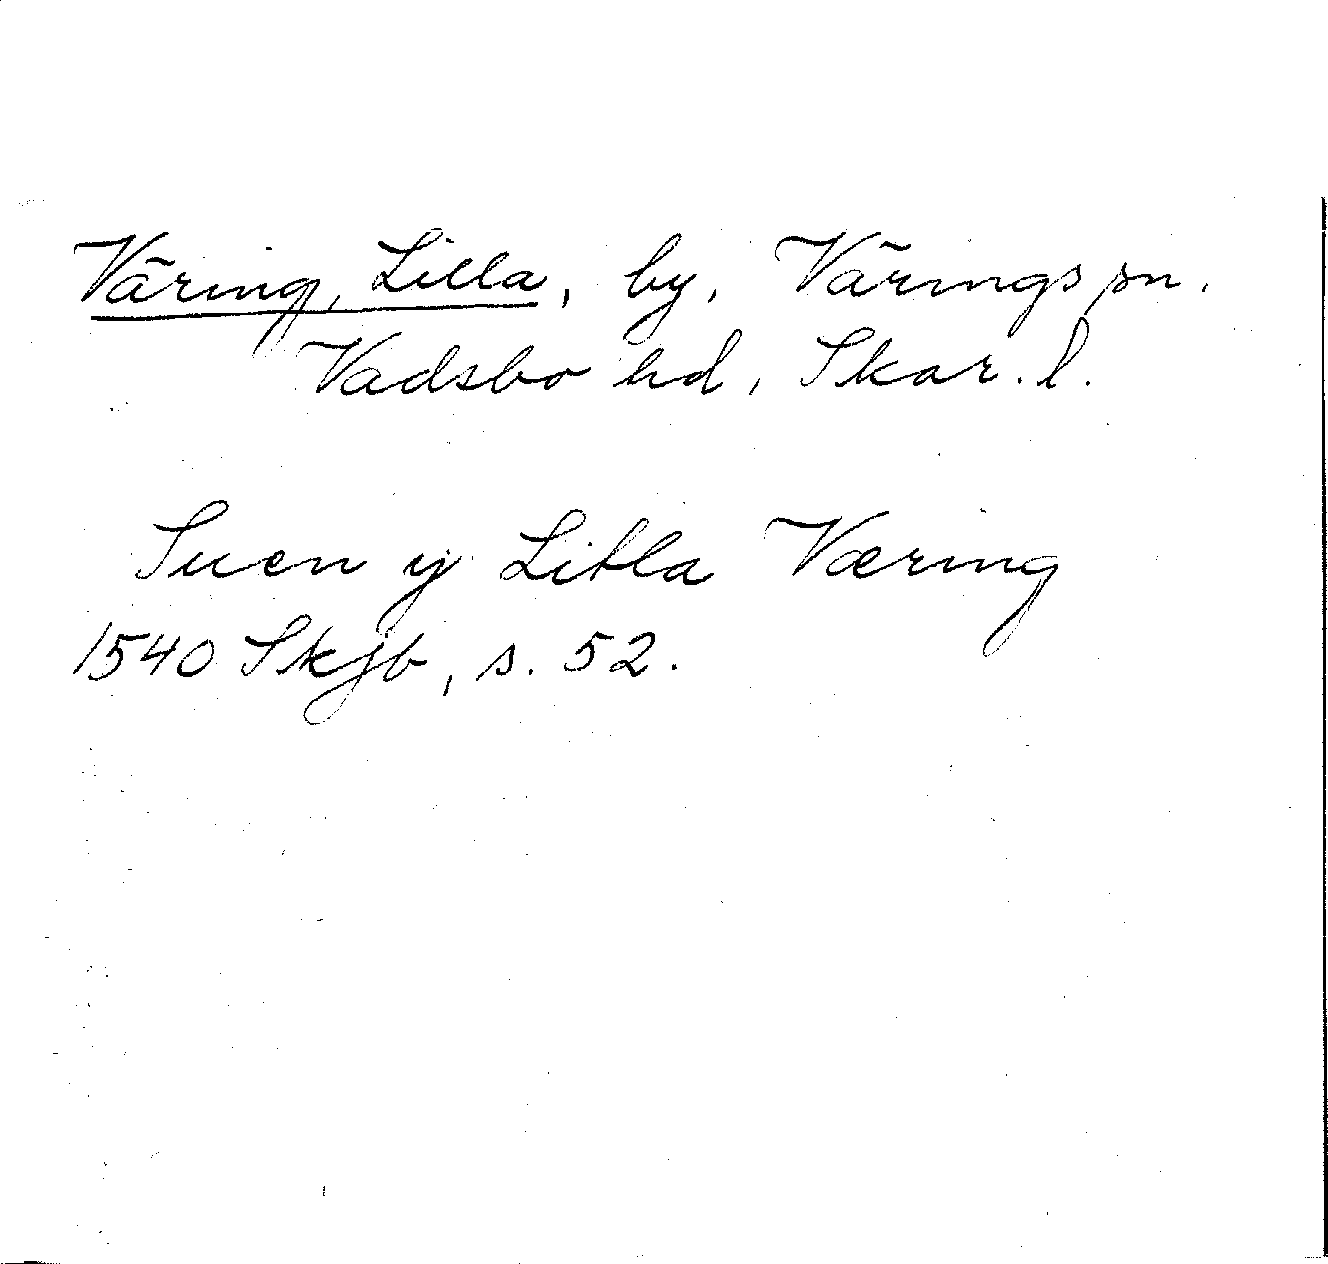 Väring, Lilla, by, Värings sn.
Vadsbo hd, Skar. l.
Suen ij Litla Væring
1540 Skjb, s. 52.